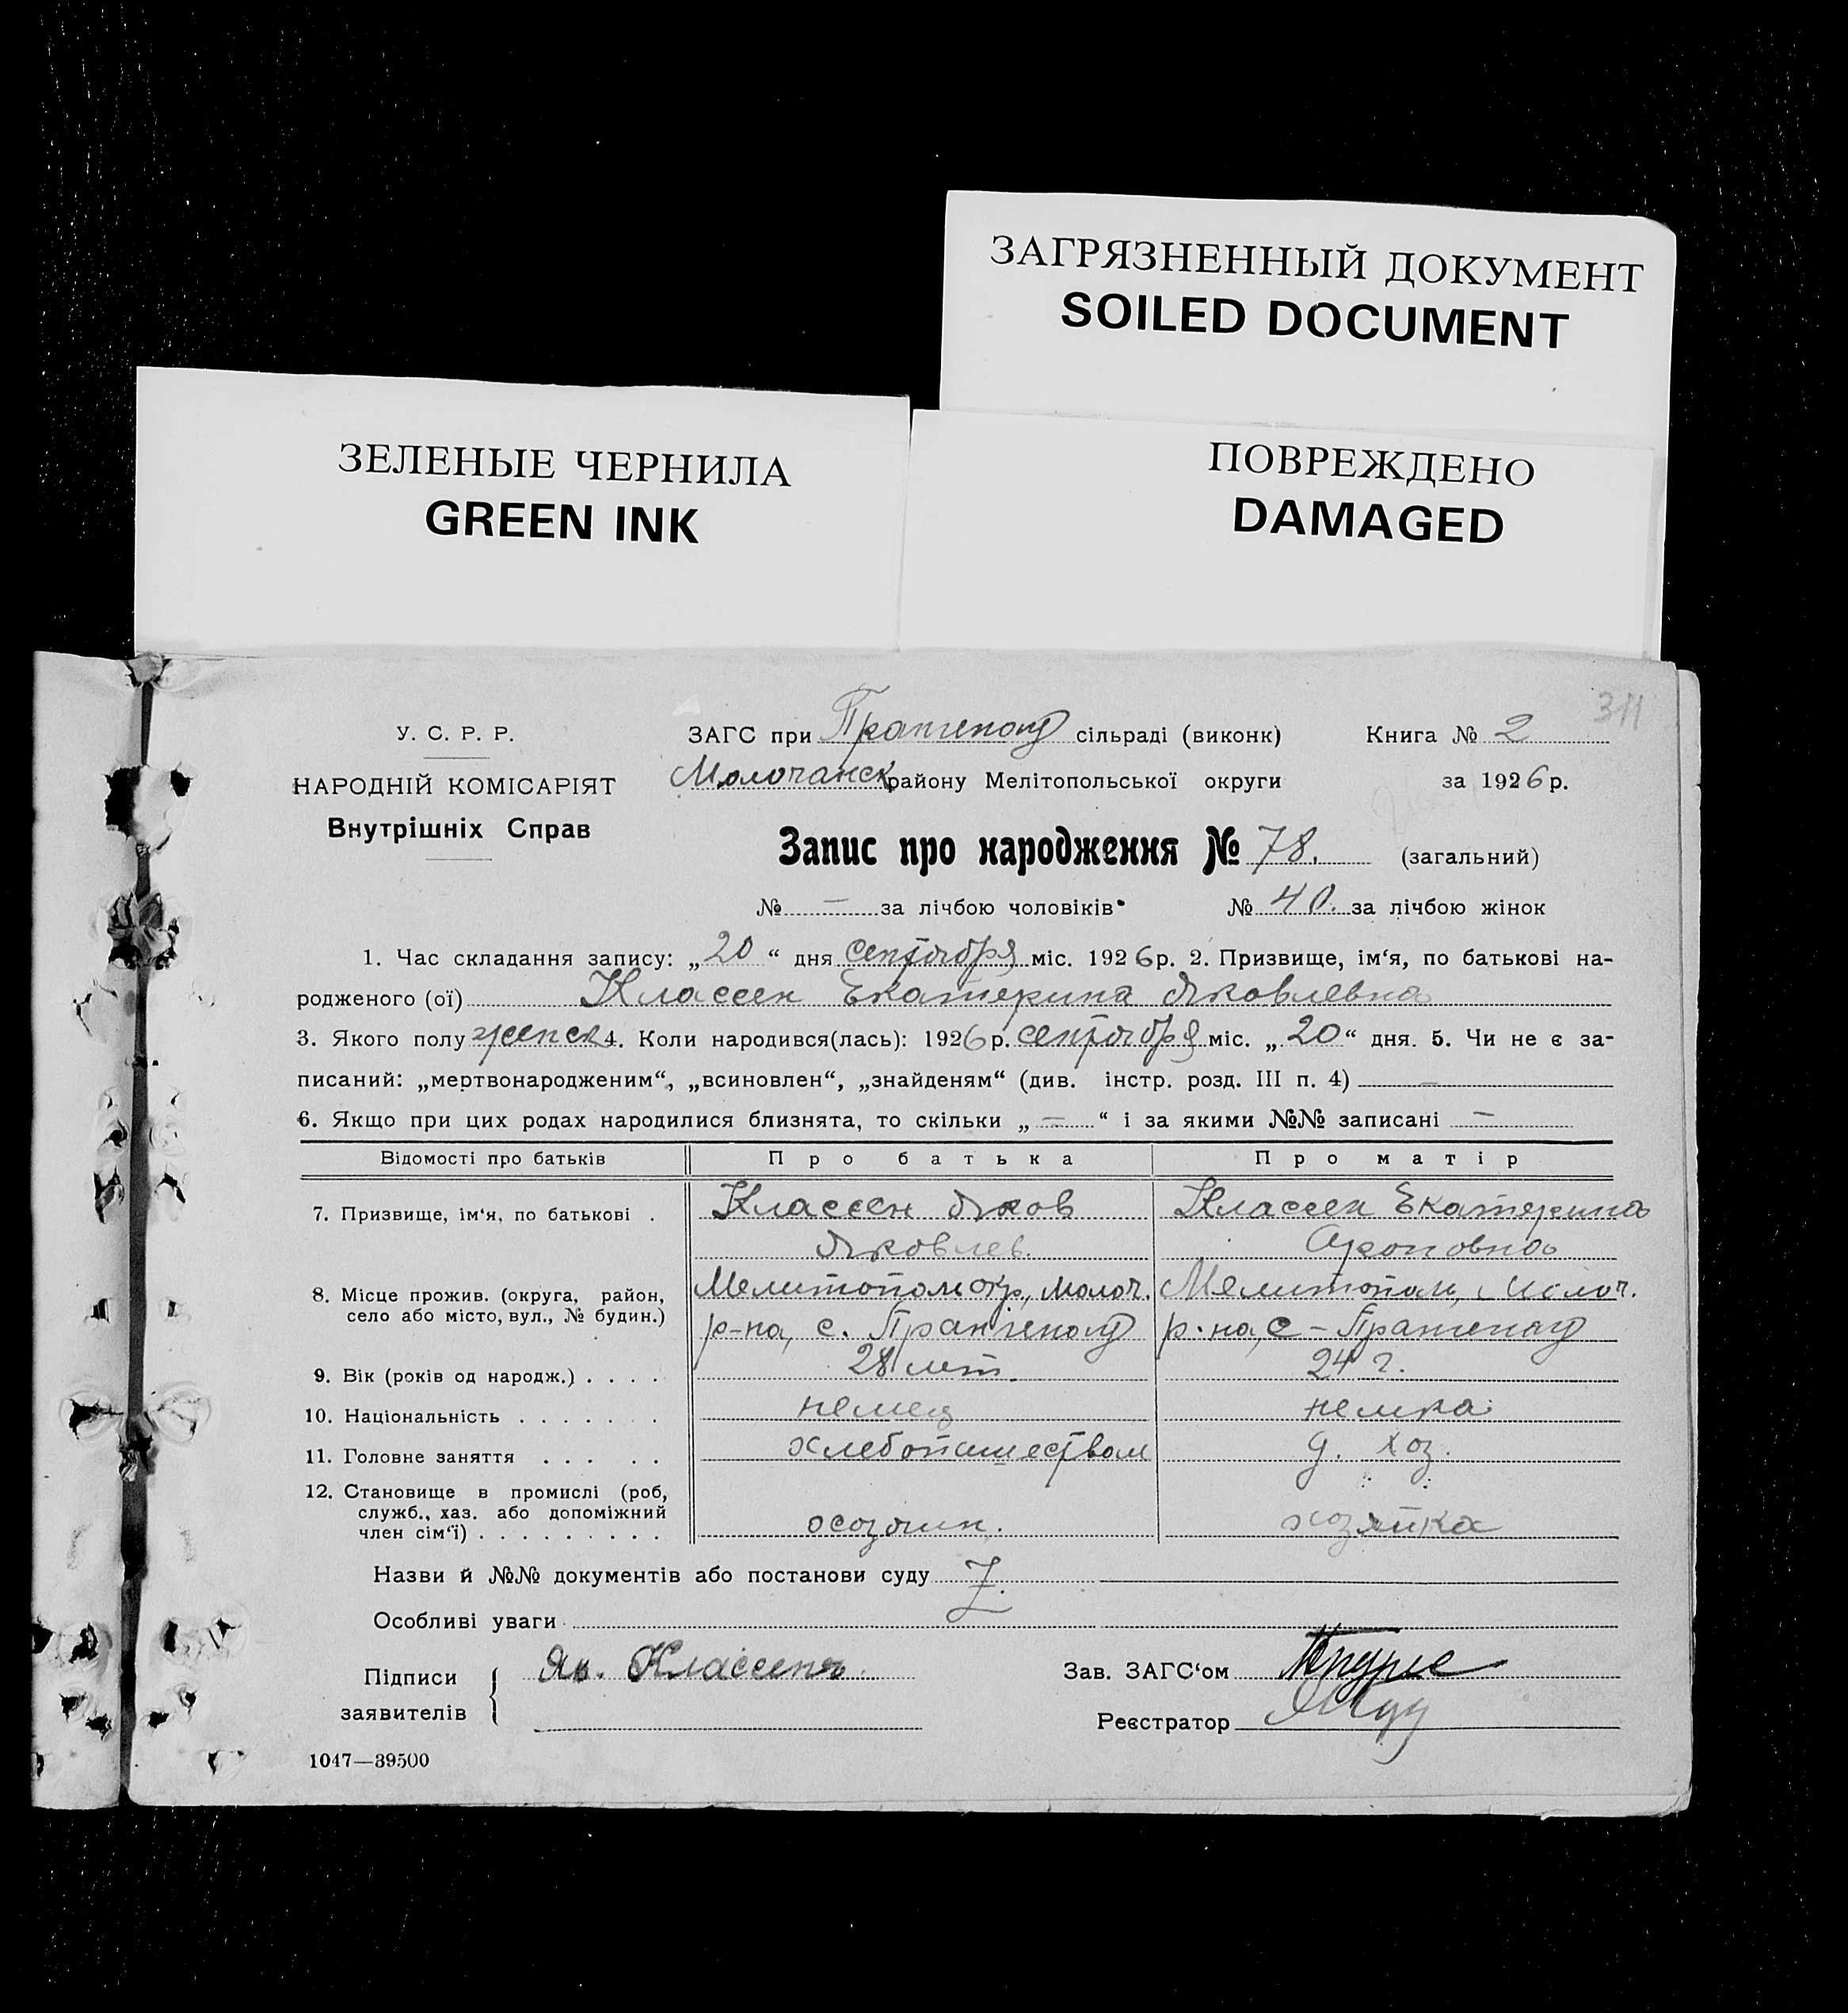 ЗАГРЯЗНЕННЫЙ ДОКУМЕНТ
SOILED DOCUMENT
ЗЕЛЕНЫЕ ЧЕРНИЛА
GREEN INK
ПОВРЕЖДЕНО
DAMAGED
311
У. С. Р. Р.
НАРОДНІЙ КОМІСАРІЯТ
Внутрішніх Справ
ЗАГС при Прангенау сільраді (виконк) Книга № 2
Молочанск району Мелітопольської округи за 1926 р.
Запис про народження № 78. (загальний)
№ — за лічбою чоловіків № 40. за лічбою жінок
1. Час складання запису: „20“ дня сентября міс. 1926 р. 2. Призвище, ім‘я, по батькові на-
родженого (ої) Классен Екатерина Яковлевна
3. Якого полу женск 4. Коли народився(лась): 1926 р. сентября міс. „20“ дня. 5. Чи не є за-
писаний: „мертвонародженим“, „всиновлен“, „знайденям“ (див. інстр. розд. III п. 4) —
6. Якщо при цих родах народилися близнята, то скільки „—“ і за якими №№ записані —
Відомості про батьків Про батька Про матір
7. Призвище, ім‘я, по батькові . Классен Яков Классен Екатерина
Яковлев. Ароновна
8. Місце прожив. (округа, район, Мелитополь окр., Молоч. Мелитополь, Молоч.
село або місто, вул., № будин.) р-на, с. Прангенау р-на, с - Прангенау
9. Вік (років од народж.) . . . . 28 лет. 24 г.
10. Національність . . . . . . . немец немка
11. Головне заняття . . . . . хлебопашеством д. хоз.
12. Становище в промислі (роб,
служб., хаз. або допоміжний
член сім‘ї) . . . . . . . . . хозяин. хозяйка
Назви й №№ документів або постанови суду
Особливі уваги
Підписи Як. Классенъ Зав. ЗАГС‘ом
заявителів Реєстратор
1047—39500